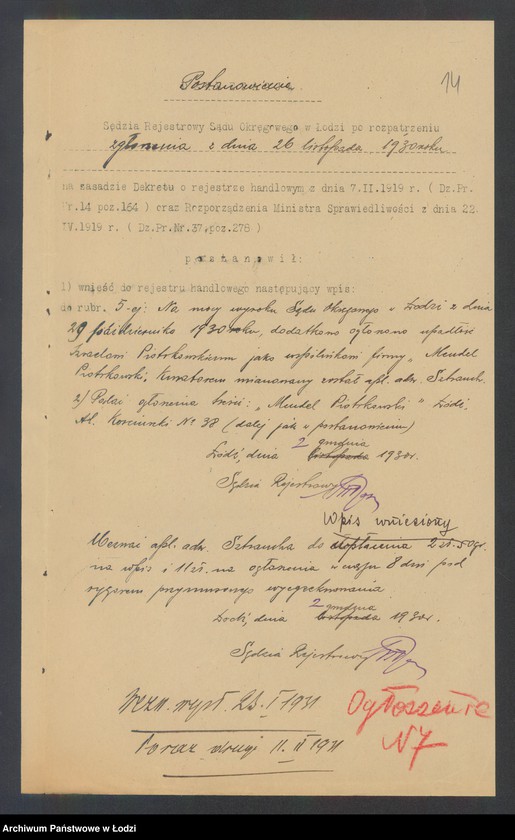 Postanowienie
14
Sędzia Rejestrowy Sądu Okręgowego w Łodzi po rozpatrzeniu
zgłoszenia z dnia 26 listopada 1930 roku
na zasadzie Dekretu o rejestrze handlowym z dnia 7.II.1919 r. ( Dz.Pr.
Nr.14 poz.164 ) oraz Rozporządzenia Ministra Sprawiedliwości z dnia 22.
IV.1919 r. ( Dz.Pr.Nr.37,poz.278 )
p o s t a n o w i ł :
1) wnieść do rejestru handlowego następujący wpis:
do rubr. 5-ej: Na mocy wyroku Sądu Okręgowego w Łodzi z dnia
29 października 1930 roku, dodatkowo ogłoszono upadłość
Izraelowi Piotrkowskiemu jako wspólnikowi firmy „Mendel
Piotrkowski. Kuratorem mianowany został apl. adw. Sztrauch.
2) Podać ogłoszenia treści: „Mendel Piotrkowski" Łódź,
Al. Kościuszki № 38 (dalej jak w postanowieniu)
Łódź, dnia 2 grudnia listopada 1930r.
Sędzia Rejestrowy
Wpis wniesiony
Wezwać apl. adw. Sztraucha do dopłacenia 2 zł. 50 gr.
na wpis i 11 zł. na ogłoszenia w ciągu 8 dni pod
rygorem przymusowego wyegzekwowania
Łódź, dnia 2 grudnia listopada 1930r.
Sędzia Rejestrowy
Wezw. wysł. 23. I 1931
Poraz drugi 11. III 1931
Ogłoszenie
N 7
Archiwum Państwowe w Łodzi